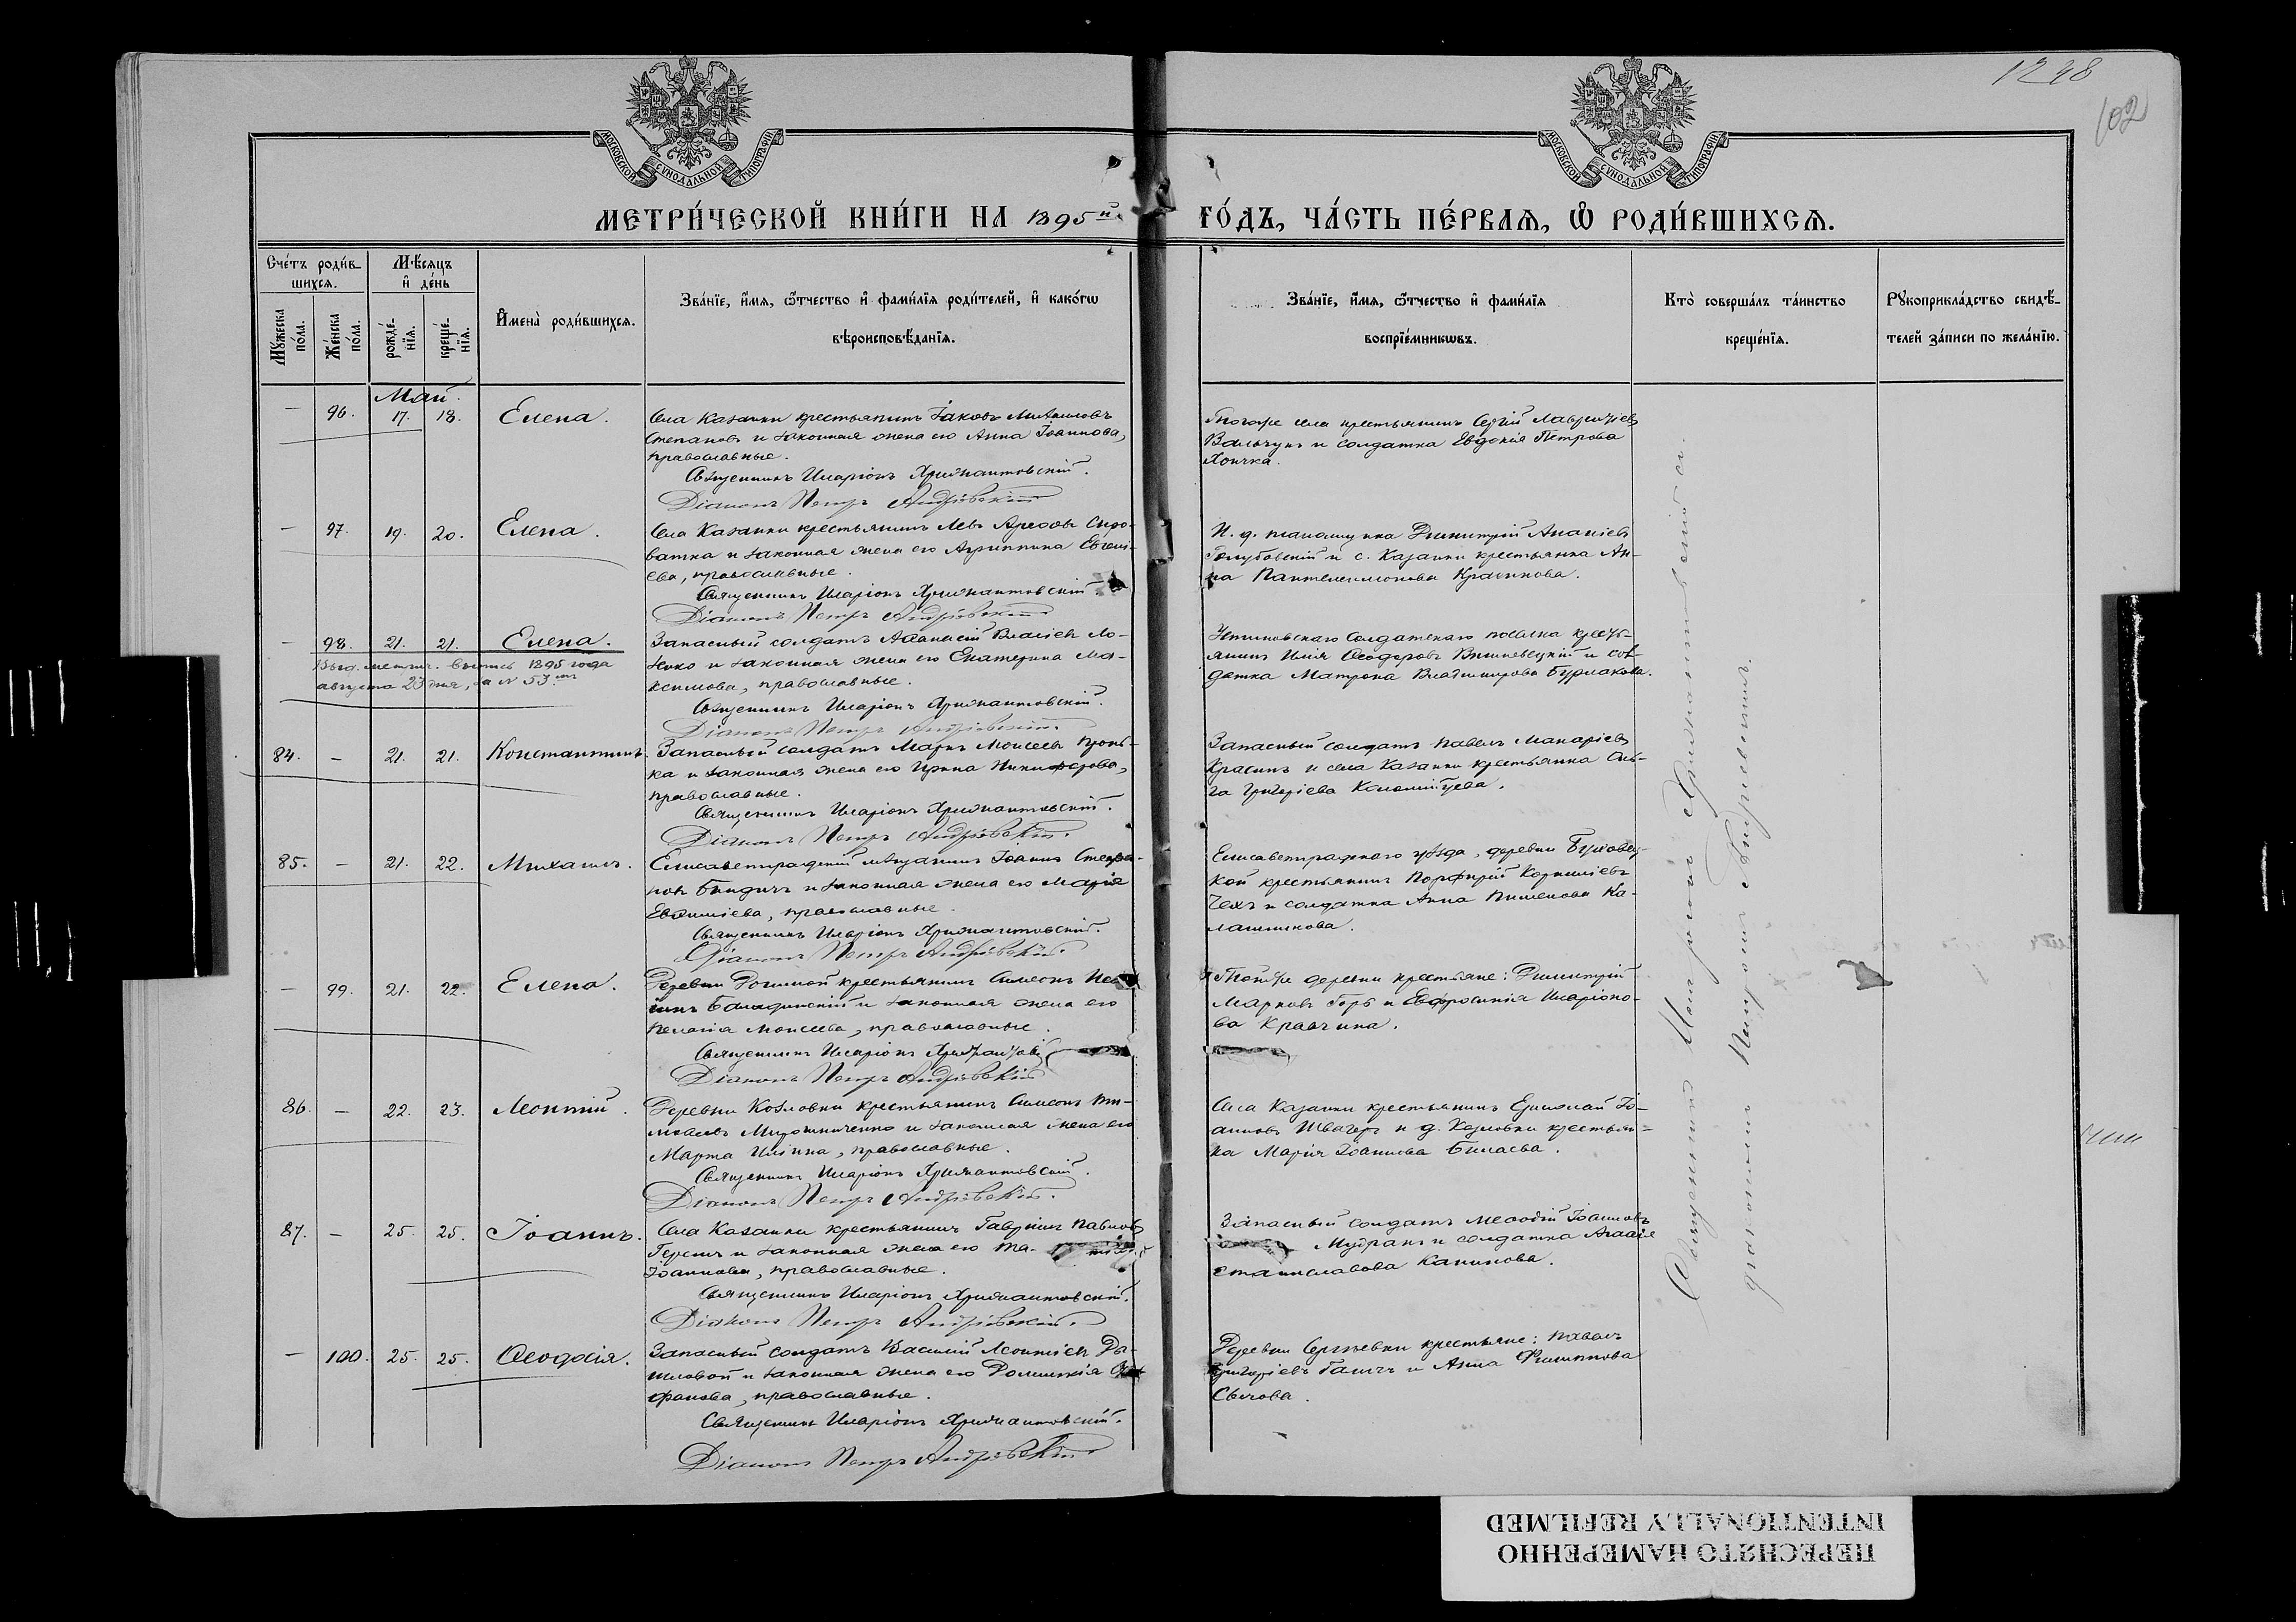 1248
102
МОСКОВСКОЙ СѴНОДАЛЬНОЙ ТИПОГРАФІИ
МОСКОВСКОЙ СѴНОДАЛЬНОЙ ТИПОГРАФІИ
МЕТРИ́ЧЕСКОЙ КНИ́ГИ НА 1895й
ГО́ДЪ, ЧА́СТЬ ПЕ́РВАѦ, Ѿ РОДИ́ВШИХСѦ.
Сче́тъ роди́вшихсѧ.
Мꙋ́жеска по́ла.
Же́нска по́ла.
Мѣ́сѧцъ и҆ де́нь
рожде́нїѧ.
креще́нїѧ.
И҆мена̀ роди́вшихсѧ.
Зва́нїе, и҆́мѧ, ѻ҆́тчество и҆ фами́лїѧ роди́телей, и҆ како́гѡ
вѣроисповѣ́данїѧ.
Зва́нїе, и҆́мѧ, ѻ҆́тчество и҆ фами́лїѧ
воспрїе́мникѡвъ.
Кто̀ соверша́лъ та́инство
креще́нїѧ.
Рꙋкоприкла́дство свидѣ́-
телей за́писи по жела́нїю.
Май.
— 96. 17. 18. Елена.
Села Казанки крестьянинъ Іаковъ
Степановъ и законная жена его Анна Іоаннова,
православные.
Священникъ Иларіонъ Хрисанѳовскій.
Діаконъ Петръ Андріевскій
Тогоже села крестьянинъ Сергій Лаврентіевъ
и солдатка Евдокія Петрова
— 97. 19. 20. Елена.
Села Казанки крестьянинъ Левъ
и законная жена его Агриппина Евгені-
ева, православные.
Священникъ Иларіонъ Хрисанѳовскій
Діаконъ Петръ Андріевскій
Димитрій Ананіевъ
Голубовскій и с. Казанки крестьянка Ан-
на Пантелеимонова
— 98. 21. 21. Елена.
Выд. метрич. выпись 1895 года
августа 23 дня, за № 53
Запасный солдатъ Аѳанасій Власіевъ Ло-
и законная жена его Екатерина Ма-
ксимова, православные.
Священникъ Иларіонъ Хрисанѳовскій.
Діаконъ Петръ Андріевскій.
Устиновскаго Солдатскаго поселка кресть-
янинъ Илія Ѳеодоровъ Вишневецкій и сол-
датка Матрона Владимирова Бурлакова.
84. — 21. 21. Константинъ.
Запасный солдатъ Маркъ Моисеевъ
и законная жена его Ирина Никифорова,
православные.
Священникъ Иларіонъ Хрисанѳовскій.
Діаконъ Петръ Андріевскій.
Запасный солдатъ Павелъ Макаріевъ
Красинъ и села Казанки крестьянка Оль-
га Григоріева Коломійцева.
85. — 21. 22. Михаилъ.
Елисаветградскій мѣщанинъ Іоаннъ
и законная жена его Марія
Евѳиміева, православные.
Священникъ Иларіонъ Хрисанѳовскій.
Діаконъ Петръ Андріевскій.
Елисаветградскаго уѣзда, деревни
крестьянинъ Порфирій Корниліевъ
Чехъ и солдатка Анна Пименова Ка-
лашникова.
— 99. 21. 22. Елена.
Деревни крестьянинъ Симеонъ
и законная жена его
Пелагія Моисеева, православные.
Священникъ Иларіонъ
Діаконъ Петръ Андріевскій
Тойже деревни крестьяне: Димитрій
Марковъ и Евфросинія Иларіоно-
ва Кравчина.
86. — 22. 23. Леонтій.
Деревни Козловки крестьянинъ Симеонъ Ти-
моѳеевъ Мирошниченко и законная жена его
Марѳа Иліина, православные.
Священникъ Иларіонъ Хрисанѳовскій.
Діаконъ Петръ Андріевскій.
Села Казанки крестьянинъ Іо-
анновъ Швачеръ и д. Козловки крестьян-
ка Марія Іоаннова Билаева.
87. — 25. 25. Іоаннъ.
Села Казанки крестьянинъ Гавріилъ Павловъ
и законная жена его
Іоаннова, православные.
Священникъ Иларіонъ Хрисанѳовскій.
Діаконъ Петръ Андріевскій.
Запасный солдатъ Меѳодій Іоанновъ
Мудракъ и солдатка Агаѳія
Станиславова Каникова.
— 100. 25. 25. Ѳеодосія.
Запасный солдатъ Василій Леонтіевъ Ды-
шловой и законная жена его Домникія
православные.
Священникъ Иларіонъ Хрисанѳовскій.
Діаконъ Петръ Андріевскій
Деревни Сергѣевки крестьяне: Павелъ
Григоріевъ Ганичъ и Анна Филиппова
Сычова.
Священникъ Иларіонъ Хрисанѳовскій съ
діакономъ Петромъ Андріевскимъ.
ПЕРЕСНЯТО НАМЕРЕННО
INTENTIONALLY REFILMED